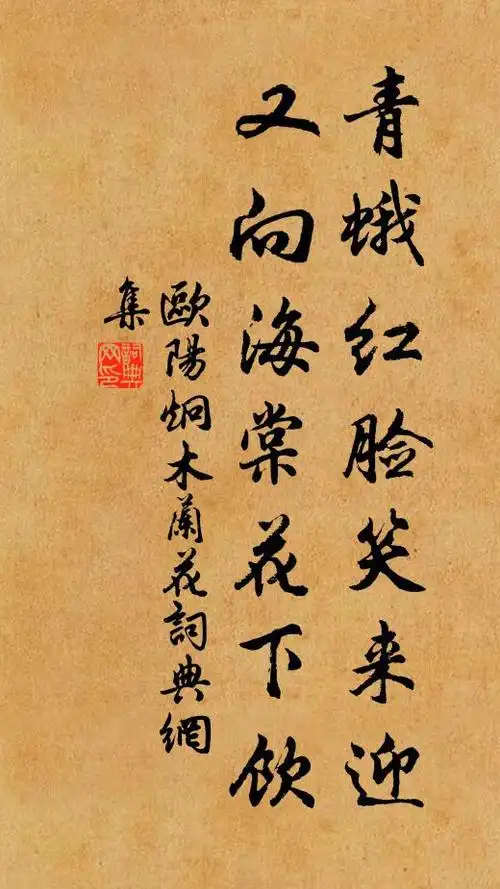 青蛾红脸笑来迎
又向海棠花下饮
歐陽炯木蘭花詞典網
集
詞典
网印